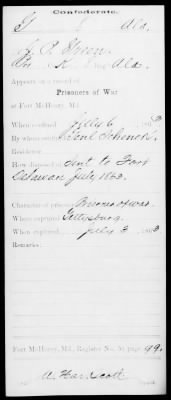 Confederate.
G Ala.
J. P. Green
Pri. K. Ala.
Appears on a record of
Prisoners of War
at Fort McHenry, Md.
When confined July 6, 1863
By whom confined Genl Schenck
Residence
How disposed of Sent to Fort
Delaware July 1863.
Character of prisoner Prisoner of war
Where captured Gettysburg.
When captured July 3, 1863
Remarks:
Fort McHenry, Md., Register No. page 99